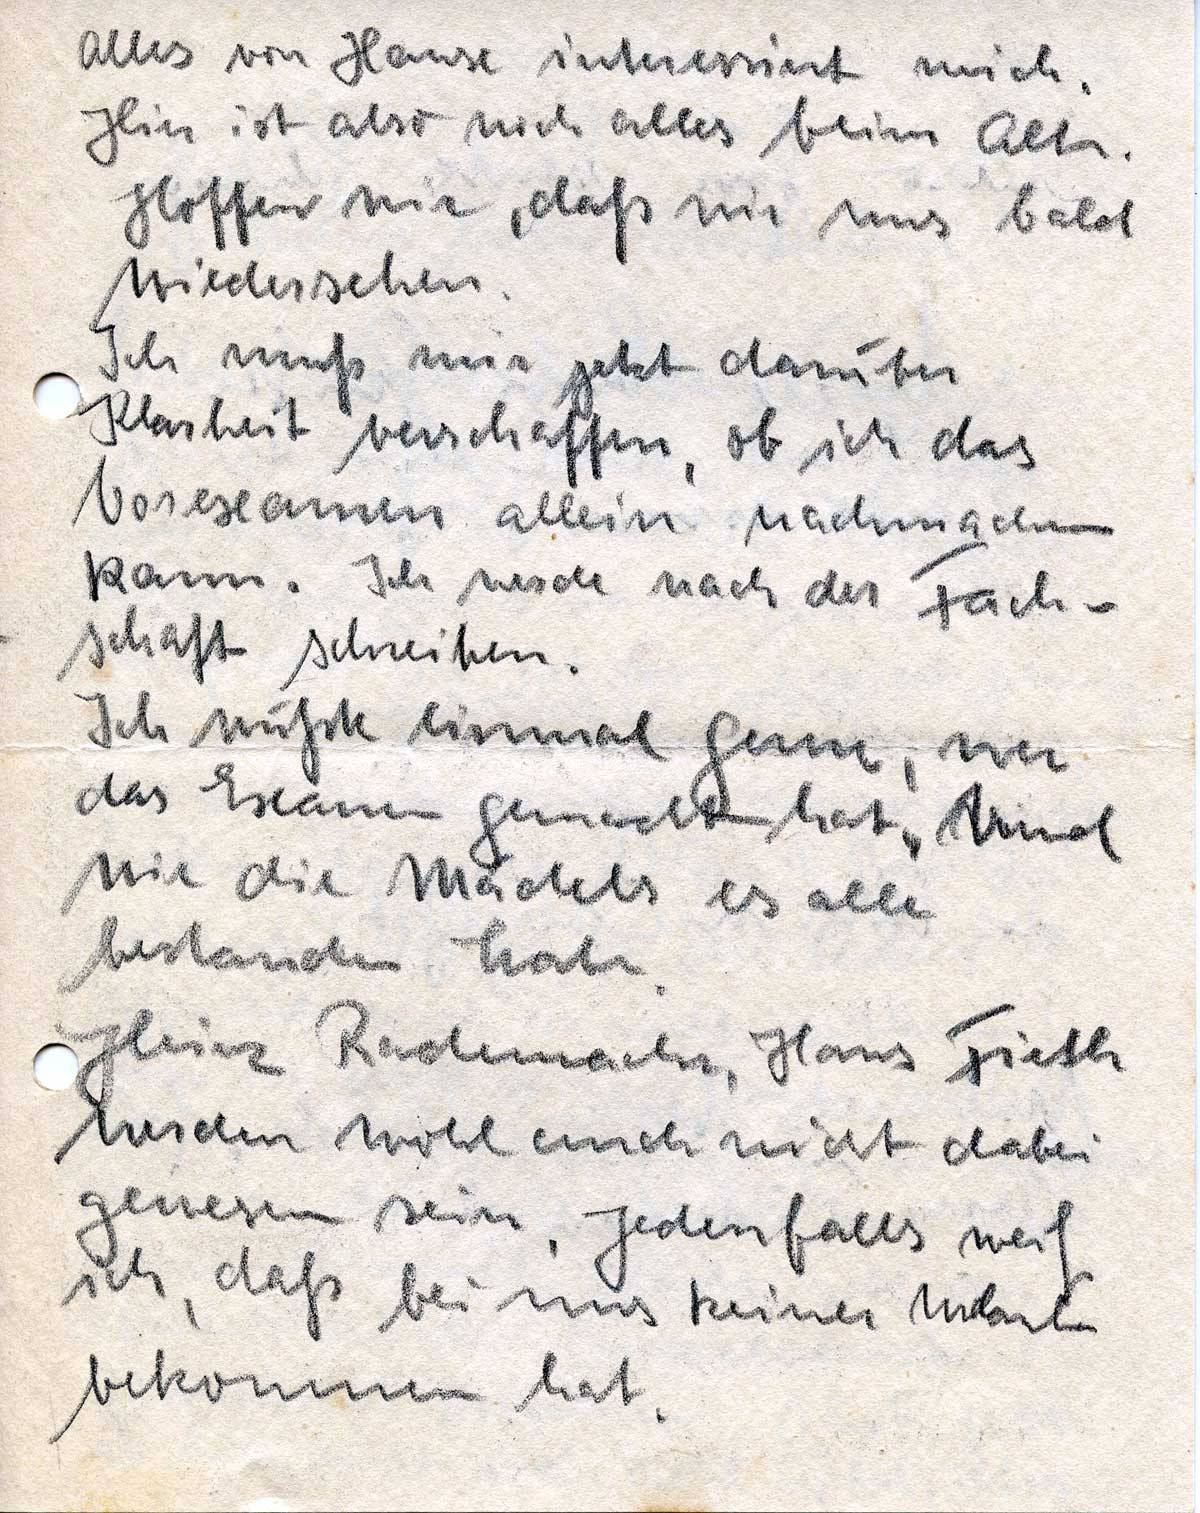 Alles von Hause interessiert mich.
Hier ist also noch alles beim Alten.
Hoffen wir, daß wir uns bald
wiedersehen.
Ich muß mir jetzt darüber
Klarheit verschaffen, ob ich das
Vorexamen allein nachmachen
kann. Ich werde nach der Fach-
schaft schreiben.
Ich wüßte einmal gerne, wer
das Examen gemacht hat, und
wie die Mädels es alle
bestanden haben.
Heinz Rademacher, Hans Fieth
werden wohl auch nicht dabei
gewesen sein, jedenfalls weiß
ich, daß bei uns keiner Urlaub
bekommen hat.